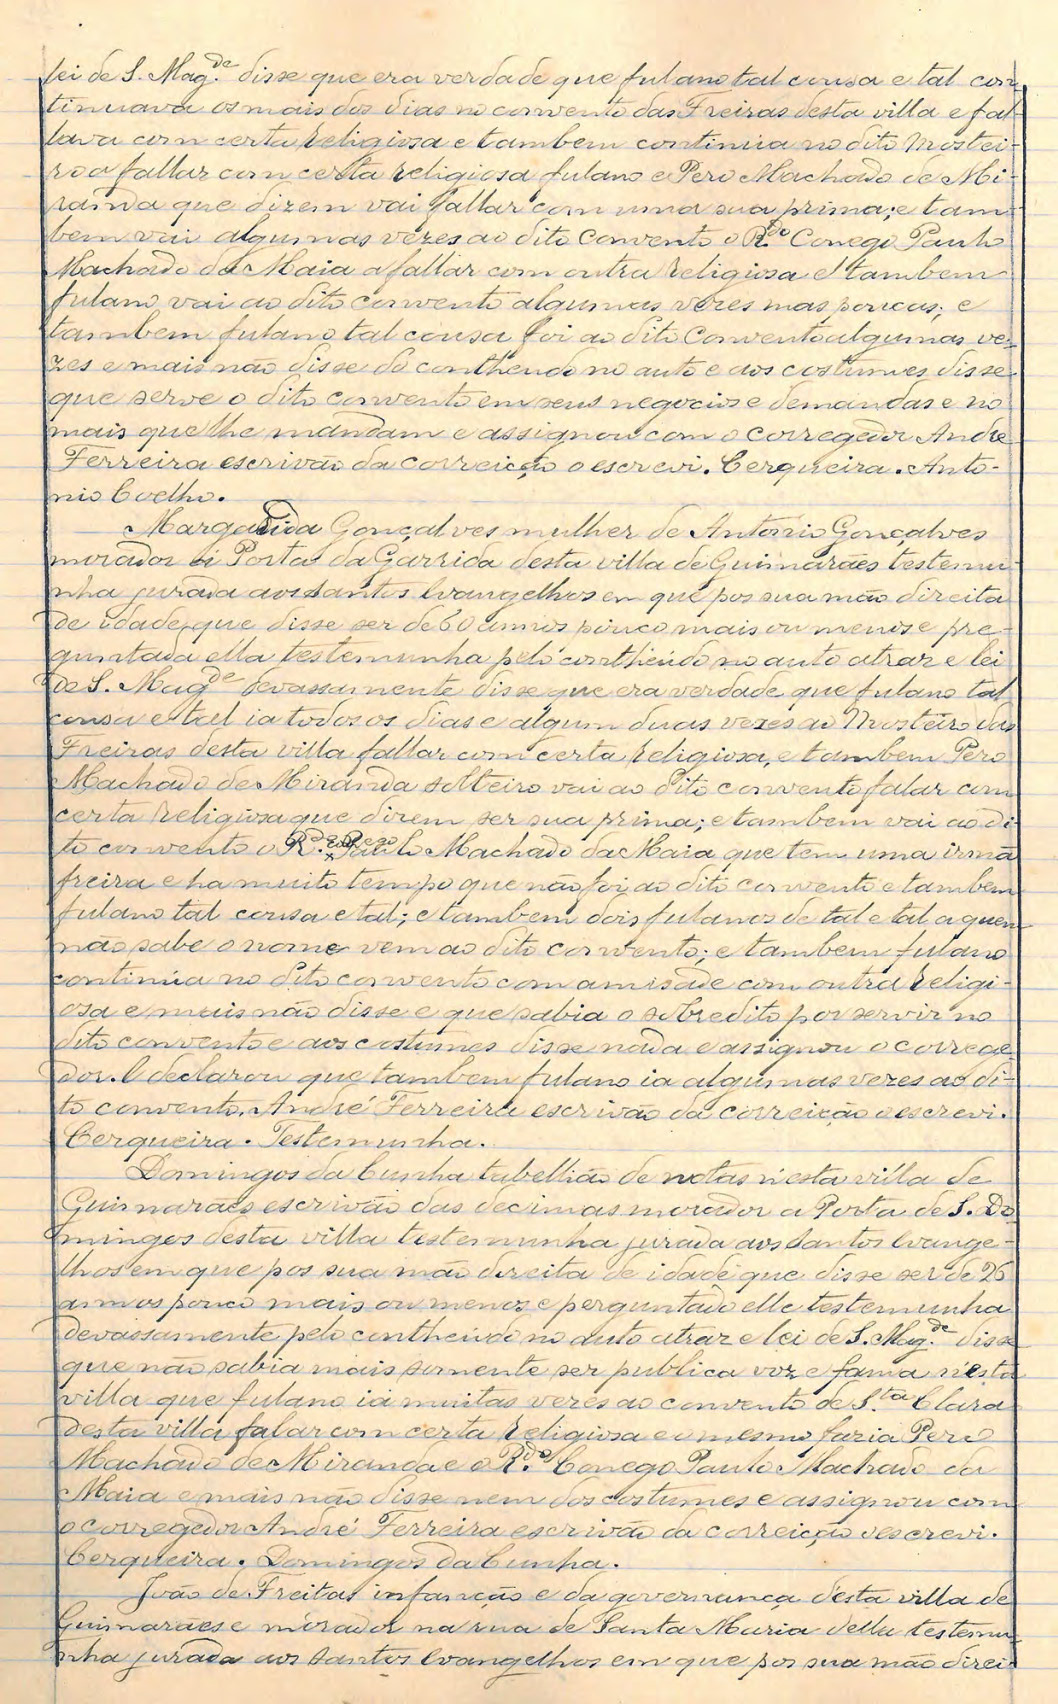 lei de S. Mag.de disse que era verdade que fulano tal cousa e tal con-
tinuava os mais dos dias no convento das Freiras desta villa e fal-
lava com certa religiosa e tambem continua no dito Mostei-
ro a fallar com certa religiosa fulano e Pero Machado de Mi-
randa que dizem vai fallar com uma sua prima; e tam-
bem vai algumas vezes ao dito convento o R.do Conego Paulo
Machado da Maia a fallar com outra religiosa e tambem
fulano vai ao dito convento algumas vezes mas poucas; e
tambem fulano tal cousa foi ao dito Convento algumas ve-
zes e mais não disse do contheudo no auto e aos costumes disse
que serve o dito convento em seus negocios e demandas e no
mais que lhe mandam e assignou com o corregedor Andre
Ferreira escrivão da correição o escrevi. Cerqueira. Anto-
nio Coelho.
Margarida Gonçalves mulher de António Gonçalves
morador á Porta da Garrida desta villa de Guimarães testemu-
nha jurada aos Santos Evangelhos em que pos sua mão direita
de idade que disse ser de 60 annos pouco mais ou menos e pre-
guntada ella testemunha pelo contheúdo no auto atraz e lei
de S. Mag.de devassamente disse que era verdade que fulano tal
cousa e tal ia todos os dias e algum duas vezes ao Mosteiro das
Freiras desta villa fallar com certa religiosa, e tambem Pero
Machado de Miranda solteiro vai ao dito convento falar com
certa religiosa que dizem ser sua prima; e tambem vai ao di-
to convento o R.do Conego Paulo Machado da Maia que tem uma irmã
freira e ha muito tempo que não foi ao dito convento e tambem
fulano tal cousa e tal; e tambem dois fulanos de tal e tal a quem
não sabe o nome vem ao dito convento; e tambem fulano
continúa no dito convento com amisade com outra religi-
osa e mais não disse e que sabia o sobredito por servir no
dito convento e aos costumes disse nada e assignou o correge-
dor. E declarou que tambem fulano ia algumas vezes ao di-
to convento. André Ferreira escrivão da correição o escrevi.
Cerqueira. Testemunha.
Domingos da Cunha tabellião de notas n'esta villa de
Guimarães escrivão das decimas morador a Porta de S. Do-
mingos desta villa testemunha jurada aos Santos Evange-
lhos em que pos sua mão direita de idade que disse ser de 26
annos pouco mais ou menos e perguntado elle testemunha
devassamente pelo contheúdo no auto atraz e lei de S. Mag.de disse
que não sabia mais somente ser publica voz e fama n'esta
villa que fulano ia muitas vezes ao convento de S.ta Clara
desta villa falar com certa religiosa e o mesmo fazia Pero
Machado de Miranda e o R.do Conego Paulo Machado da
Maia e mais não disse nem dos costumes e assignou com
o corregedor André Ferreira escrivão da correição o escrevi.
Cerqueira. Domingos da Cunha.
João de Freitas infanção e da governança desta villa de
Guimarães e morador na rua de Santa Maria della testemu-
nha jurada aos Santos Evangelhos em que pos sua mão direi-